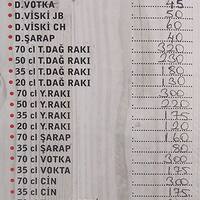 D.VOTKA 45
D.VİSKİ JB 50
D.VİSKİ CH 60
D.ŞARAP 40
70 cl T.DAĞ RAKI 320
50 cl T.DAĞ RAKI 230
35 cl T.DAĞ RAKI 180
20 cl T.DAĞ RAKI 130
70 cl Y.RAKI 300
50 cl Y.RAKI 220
35 cl Y.RAKI 175
20 cl Y.RAKI 120
70 cl ŞARAP 160
35 cl ŞARAP 80
70 cl VOTKA 300
35 cl VOKTA 175
70 cl CİN 300
35 cl CİN 175